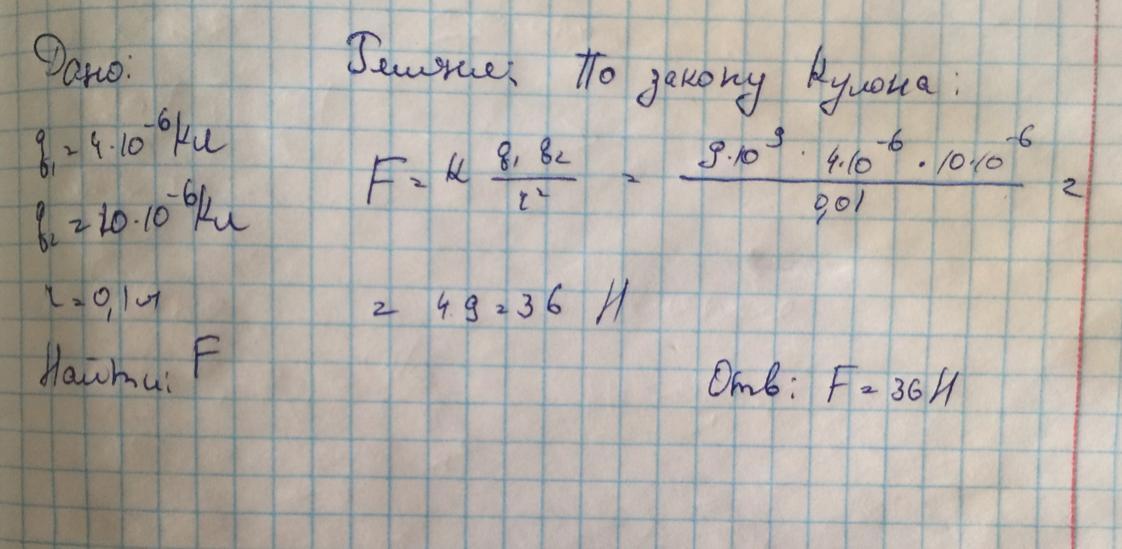 Дано:
q₁ = 4·10⁻⁶ Кл
q₂ = 10·10⁻⁶ Кл
r = 0,1 м
Найти: F
Решение: По закону Кулона:
F = k q₁ q₂ / r² = 9·10⁹ · 4·10⁻⁶ · 10·10⁻⁶ / 0,01 =
= 4·9 = 36 Н
Отв: F = 36 Н